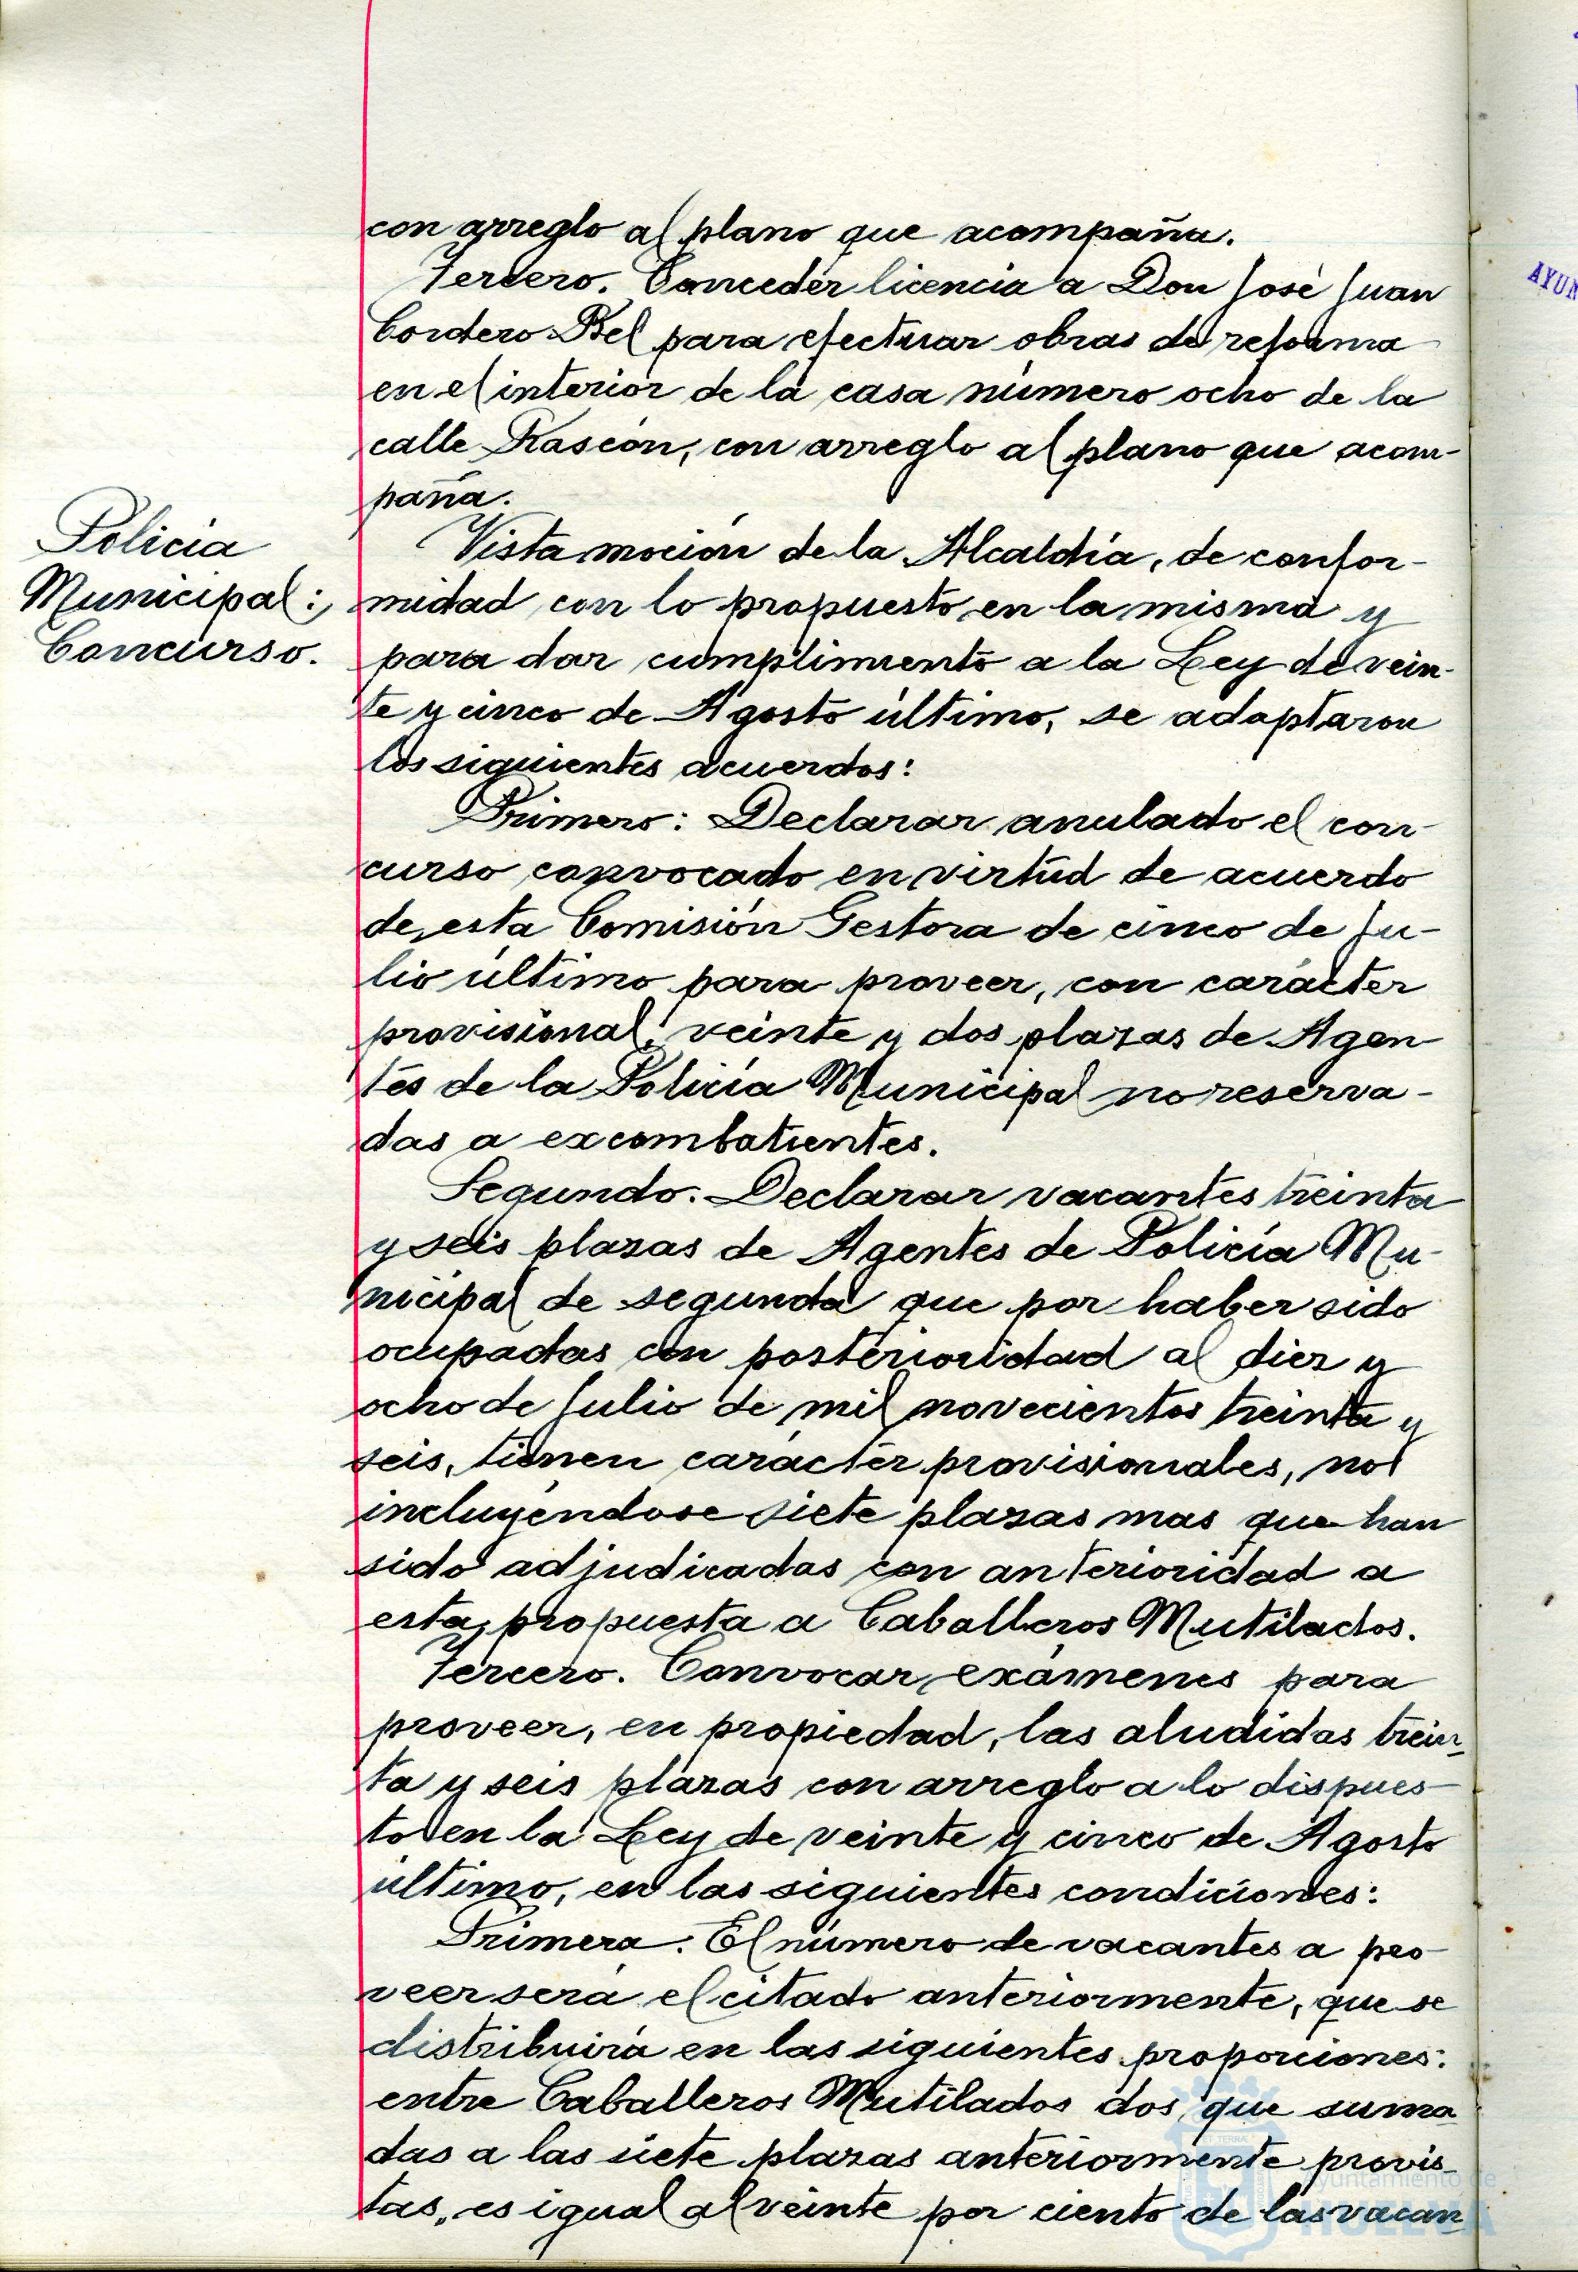 con arreglo al plano que acompaña.
Tercero. Conceder licencia a Don José Juan
Cordero Bel para efectuar obras de reforma
en el interior de la casa número ocho de la
calle Rascón, con arreglo al plano que acom-
paña.
Policía
Municipal:
Concurso.
Vista moción de la Alcaldía, de confor-
midad con lo propuesto en la misma y
para dar cumplimiento a la Ley de vein-
te y cinco de Agosto último, se adoptaron
los siguientes acuerdos:
Primero: Declarar anulado el con-
curso convocado en virtud de acuerdo
de esta Comisión Gestora de cinco de Ju-
lio último para proveer, con carácter
provisional, veinte y dos plazas de Agen-
tes de la Policía Municipal no reserva-
das a excombatientes.
Segundo. Declarar vacantes treinta
y seis plazas de Agentes de Policía Mu-
nicipal de segunda que por haber sido
ocupadas con posterioridad al diez y
ocho de Julio de mil novecientos treinta y
seis, tienen carácter provisionales, no
incluyéndose siete plazas mas que han
sido adjudicadas con anterioridad a
esta propuesta a Caballeros Mutilados.
Tercero. Convocar exámenes para
proveer, en propiedad, las aludidas trein-
ta y seis plazas con arreglo a lo dispues-
to en la Ley de veinte y cinco de Agosto
último, en las siguientes condiciones:
Primera. El número de vacantes a pro-
veer será el citado anteriormente, que se
distribuirá en las siguientes proporciones:
entre Caballeros Mutilados dos que suma-
das a las siete plazas anteriormente provis-
tas, es igual al veinte por ciento de las vacan-
Ayuntamiento de
HUELVA
AYUN